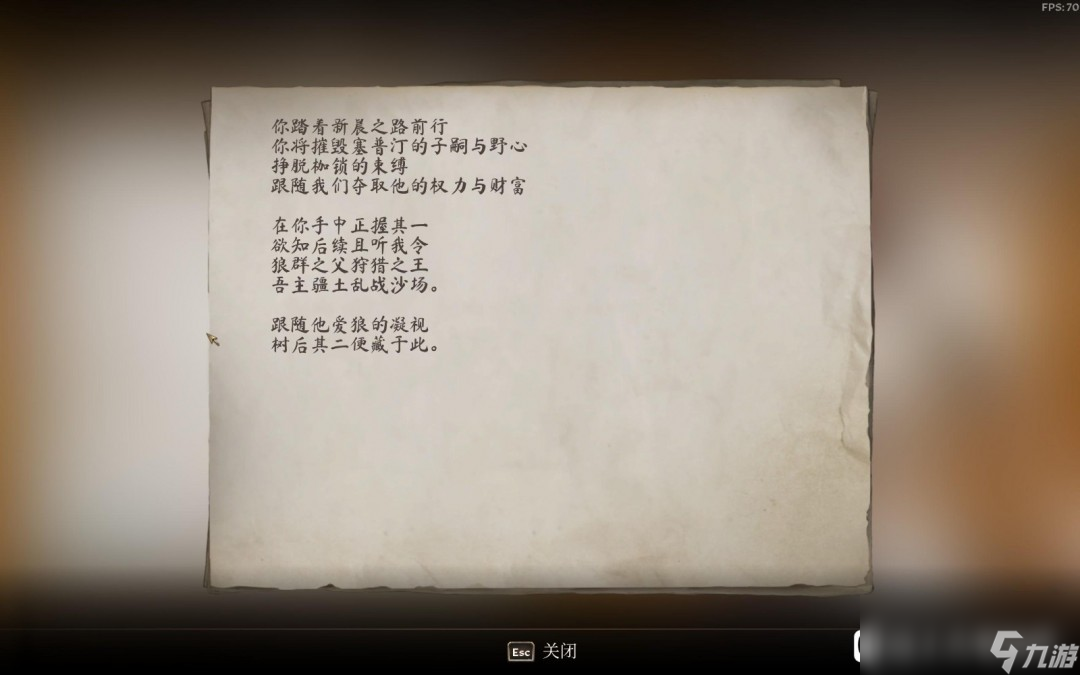 FPS: 70
你踏着新晨之路前行
你将摧毁塞普汀的子嗣与野心
挣脱枷锁的束缚
跟随我们夺取他的权力与财富
在你手中正握其一
欲知后续且听我令
狼群之父狩猎之王
吾主疆土乱战沙场。
跟随他爱狼的凝视
树后其二便藏于此。
Esc 关闭
九游